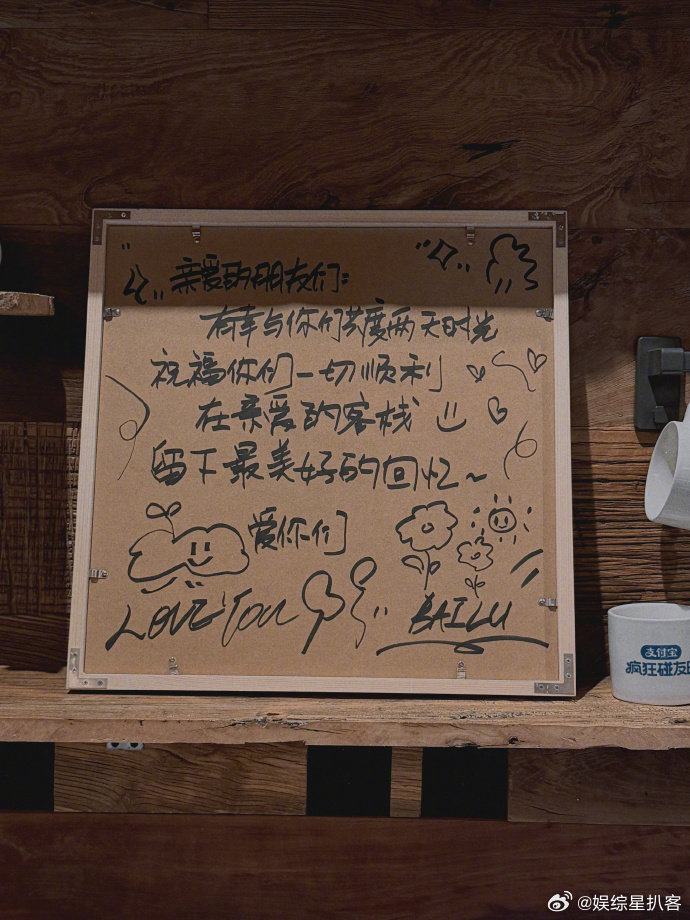 亲爱的朋友们:
有幸与你们共度两天时光
祝福你们一切顺利
在亲爱的客栈
留下最美好的回忆~
爱你们
LOVE YOU
BAILU
支付宝
疯狂碰友
@娱综星扒客